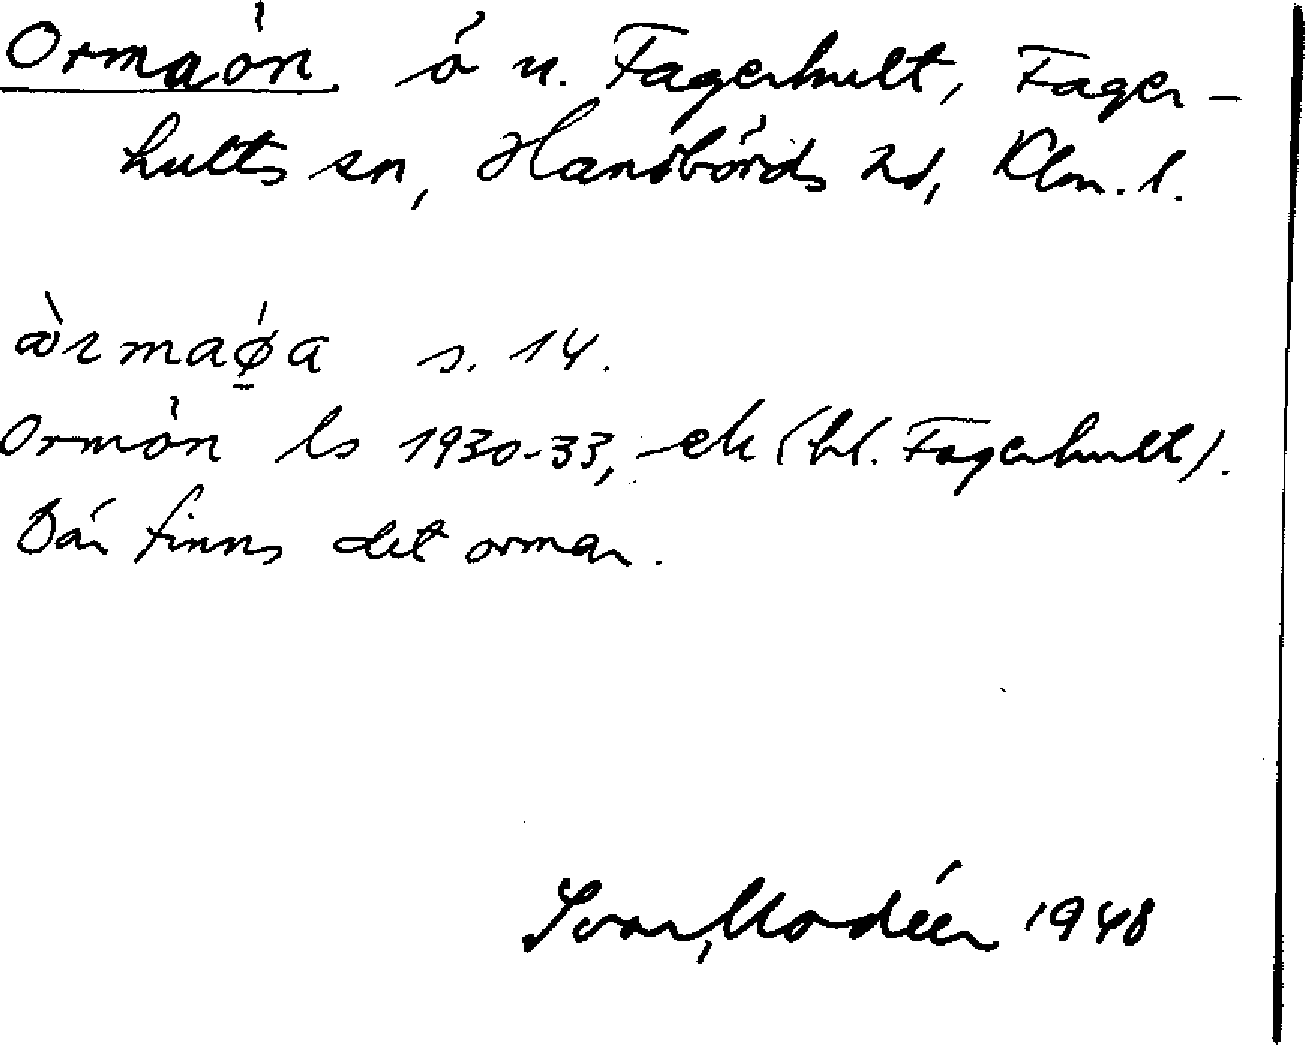 Ormaön ö u. Fagerhult, Fager-
hults sn, Handbörds hd, Klm. l.
òrmaǿ̱a s. 14.
Ormön ls 1930-33, ek (bl. Fagerhult).
Där finns det ormar.
Ivar Modéer 1948